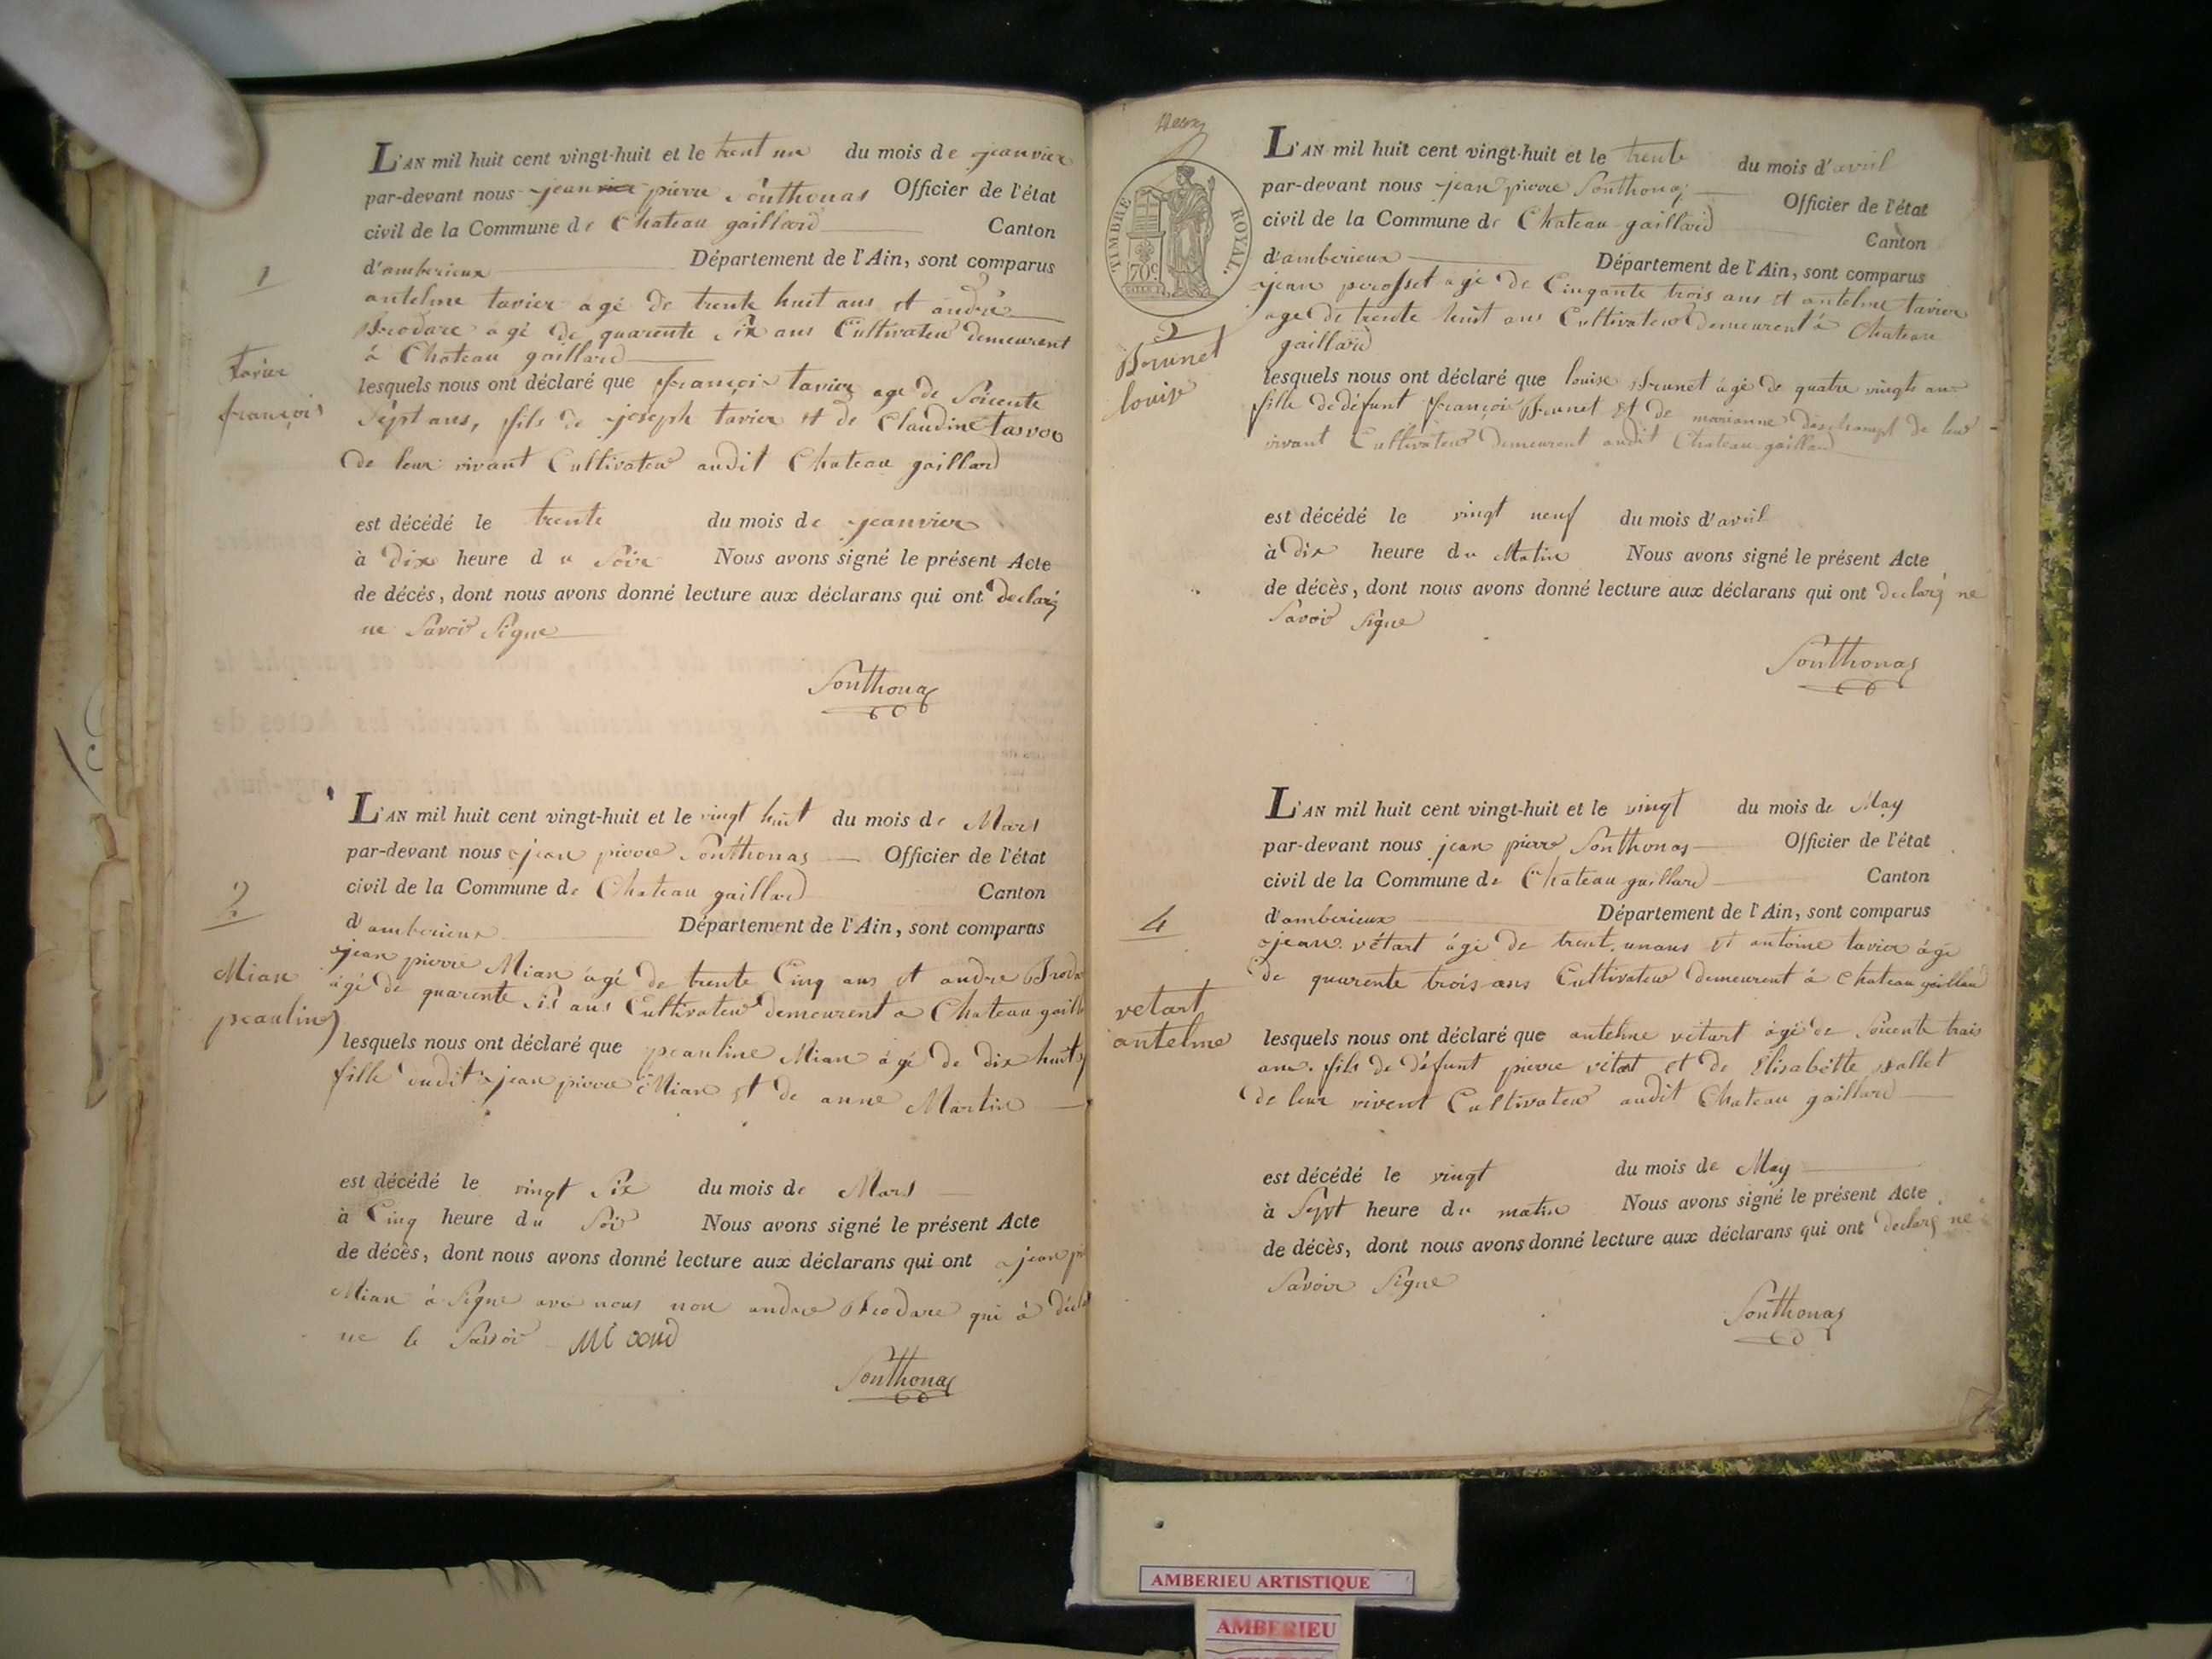 1
tavier
françois
L'AN mil huit cent vingt-huit et le trent un du mois de jeanvier
par-devant nous jean pierre Southonas Officier de l'état
civil de la Commune de Chateau gaillard Canton
d'amberieux Département de l'Ain, sont comparus
antelme tavier agé de trente huit ans et andré
Brodare agé de quarente six ans Cultivateur demeurent
à Chateau gaillard
lesquels nous ont déclaré que françois tavier age de Soicente
Sept ans, fils de joseph tavier et de Claudine
de leur vivant Cultivateur audit Chateau gaillard
est décédé le trente du mois de jeanvier
à dix heure du Soir Nous avons signé le présent Acte
de décès, dont nous avons donné lecture aux déclarans qui ont declaré
ne Savoir Signe
Southonas
2
Mian
peauline
L'AN mil huit cent vingt-huit et le vingt huit du mois de Mars
par-devant nous jean pierre Southonas Officier de l'état
civil de la Commune de Chateau gaillard Canton
d'amberieux Département de l'Ain, sont comparus
jean pierre Mian agé de trente Cinq ans et andre
agé de quarente six ans Cultivateur demeurent a Chateau gaill
lesquels nous ont déclaré que peauline Mian agé de dix huit
fille dudit jean pierre Mian et de anne Martin
est décédé le vingt Six du mois de Mars
à Cinq heure du Soir Nous avons signé le présent Acte
de décès, dont nous avons donné lecture aux déclarans qui ont jean
Mian à Signe avec nous non andre Brodare qui à
ne le Savoir
Southonas
TIMBRE ROYAL.
70c
3
Brunet
louise
L'AN mil huit cent vingt-huit et le trente du mois d'avril
par-devant nous jean pierre Southonas Officier de l'état
civil de la Commune de Chateau gaillard Canton
d'amberieux Département de l'Ain, sont comparus
jean perosset agé de Cinqante trois ans et antelme tavier
age de trente huit ans Cultivateur demeurent à Chateau
gaillard
lesquels nous ont déclaré que louise Brunet agé de quatre vingts an
fille de défunt françois Brunet et de marianne deschampt de leur
vivant Cultivateur demeurent audit Chateau gaillard
est décédé le vingt neuf du mois d'avril
à dix heure du Matin Nous avons signé le présent Acte
de décès, dont nous avons donné lecture aux déclarans qui ont declaré ne
Savoir Signe
Southonas
4
vetart
antelme
L'AN mil huit cent vingt-huit et le vingt du mois de May
par-devant nous jean pierre Southonas Officier de l'état
civil de la Commune de Chateau gaillard Canton
d'amberieux Département de l'Ain, sont comparus
jean vétart agé de trent un ans et antoine tavier agé
de quarente trois ans Cultivateur demeurent à Chateau gaillard
lesquels nous ont déclaré que antelme vétart agé de Soicente trais
ans fils de défunt pierre vétart et de Elisabette vallet
de leur vivent Cultivateur audit Chateau gaillard
est décédé le vingt du mois de May
à Sept heure du matin Nous avons signé le présent Acte
de décès, dont nous avons donné lecture aux déclarans qui ont declaré ne
Savoir Signe
Southonas
AMBERIEU ARTISTIQUE
AMBERIEU